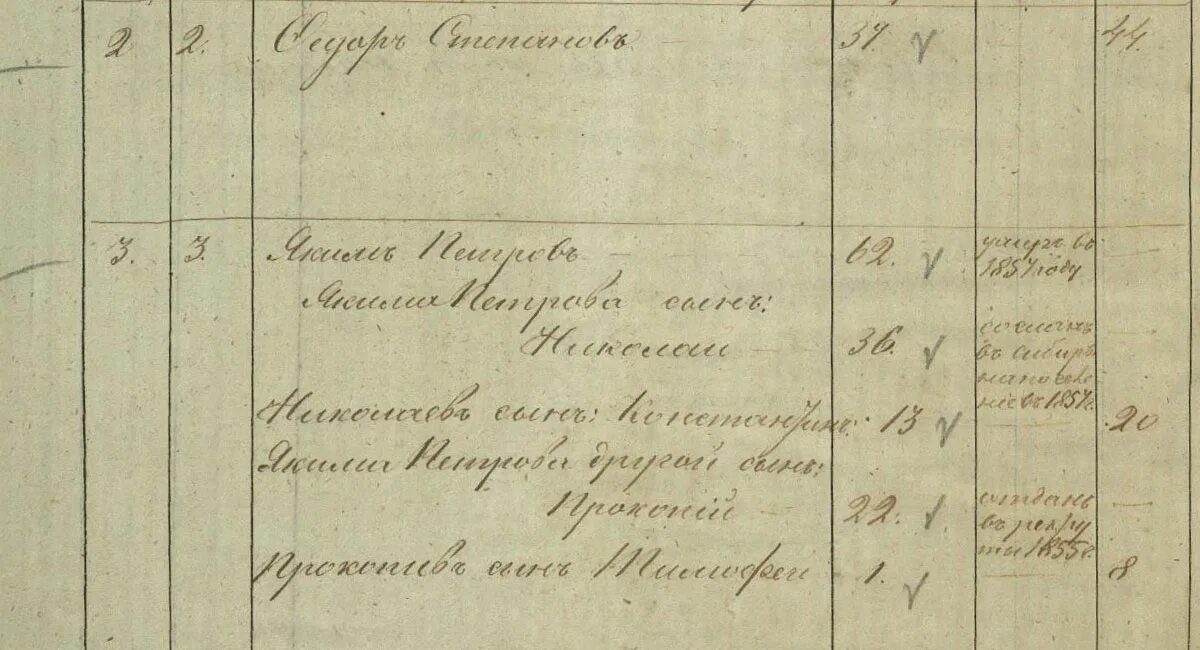 2 2. Ѳедоръ Степановъ 37. 44.
3. 3. Якимъ Петровъ 62. умеръ въ
1857 году
Якима Петрова сынъ:
Николай 36. сосланъ
въ сибирь
на поселе-
ніе въ 1857 г.
Николаевъ сынъ: Константинъ. 13 20
Якима Петрова другой сынъ:
Прокопій 22. отданъ
въ рекру
ты 1855 г.
Прокопіевъ сынъ Тимофей 1. 8